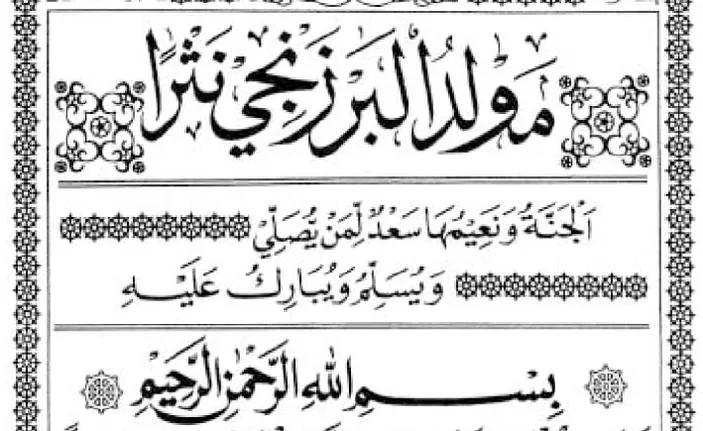 مَوْلِدُ الْبَرْزَنْجِي نَثْرًا
اَلْجَنَّةُ وَنَعِيْمُهَا سَعْدٌ لِّمَنْ يُّصَلِّيْ
وَيُسَلِّمُ وَيُبَارِكُ عَلَيْهِ
بِسْمِ اللهِ الرَّحْمٰنِ الرَّحِيْمِ